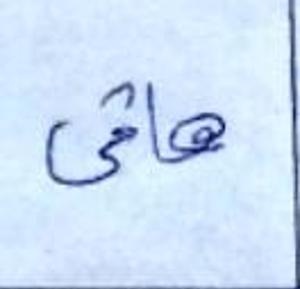 هاشمی